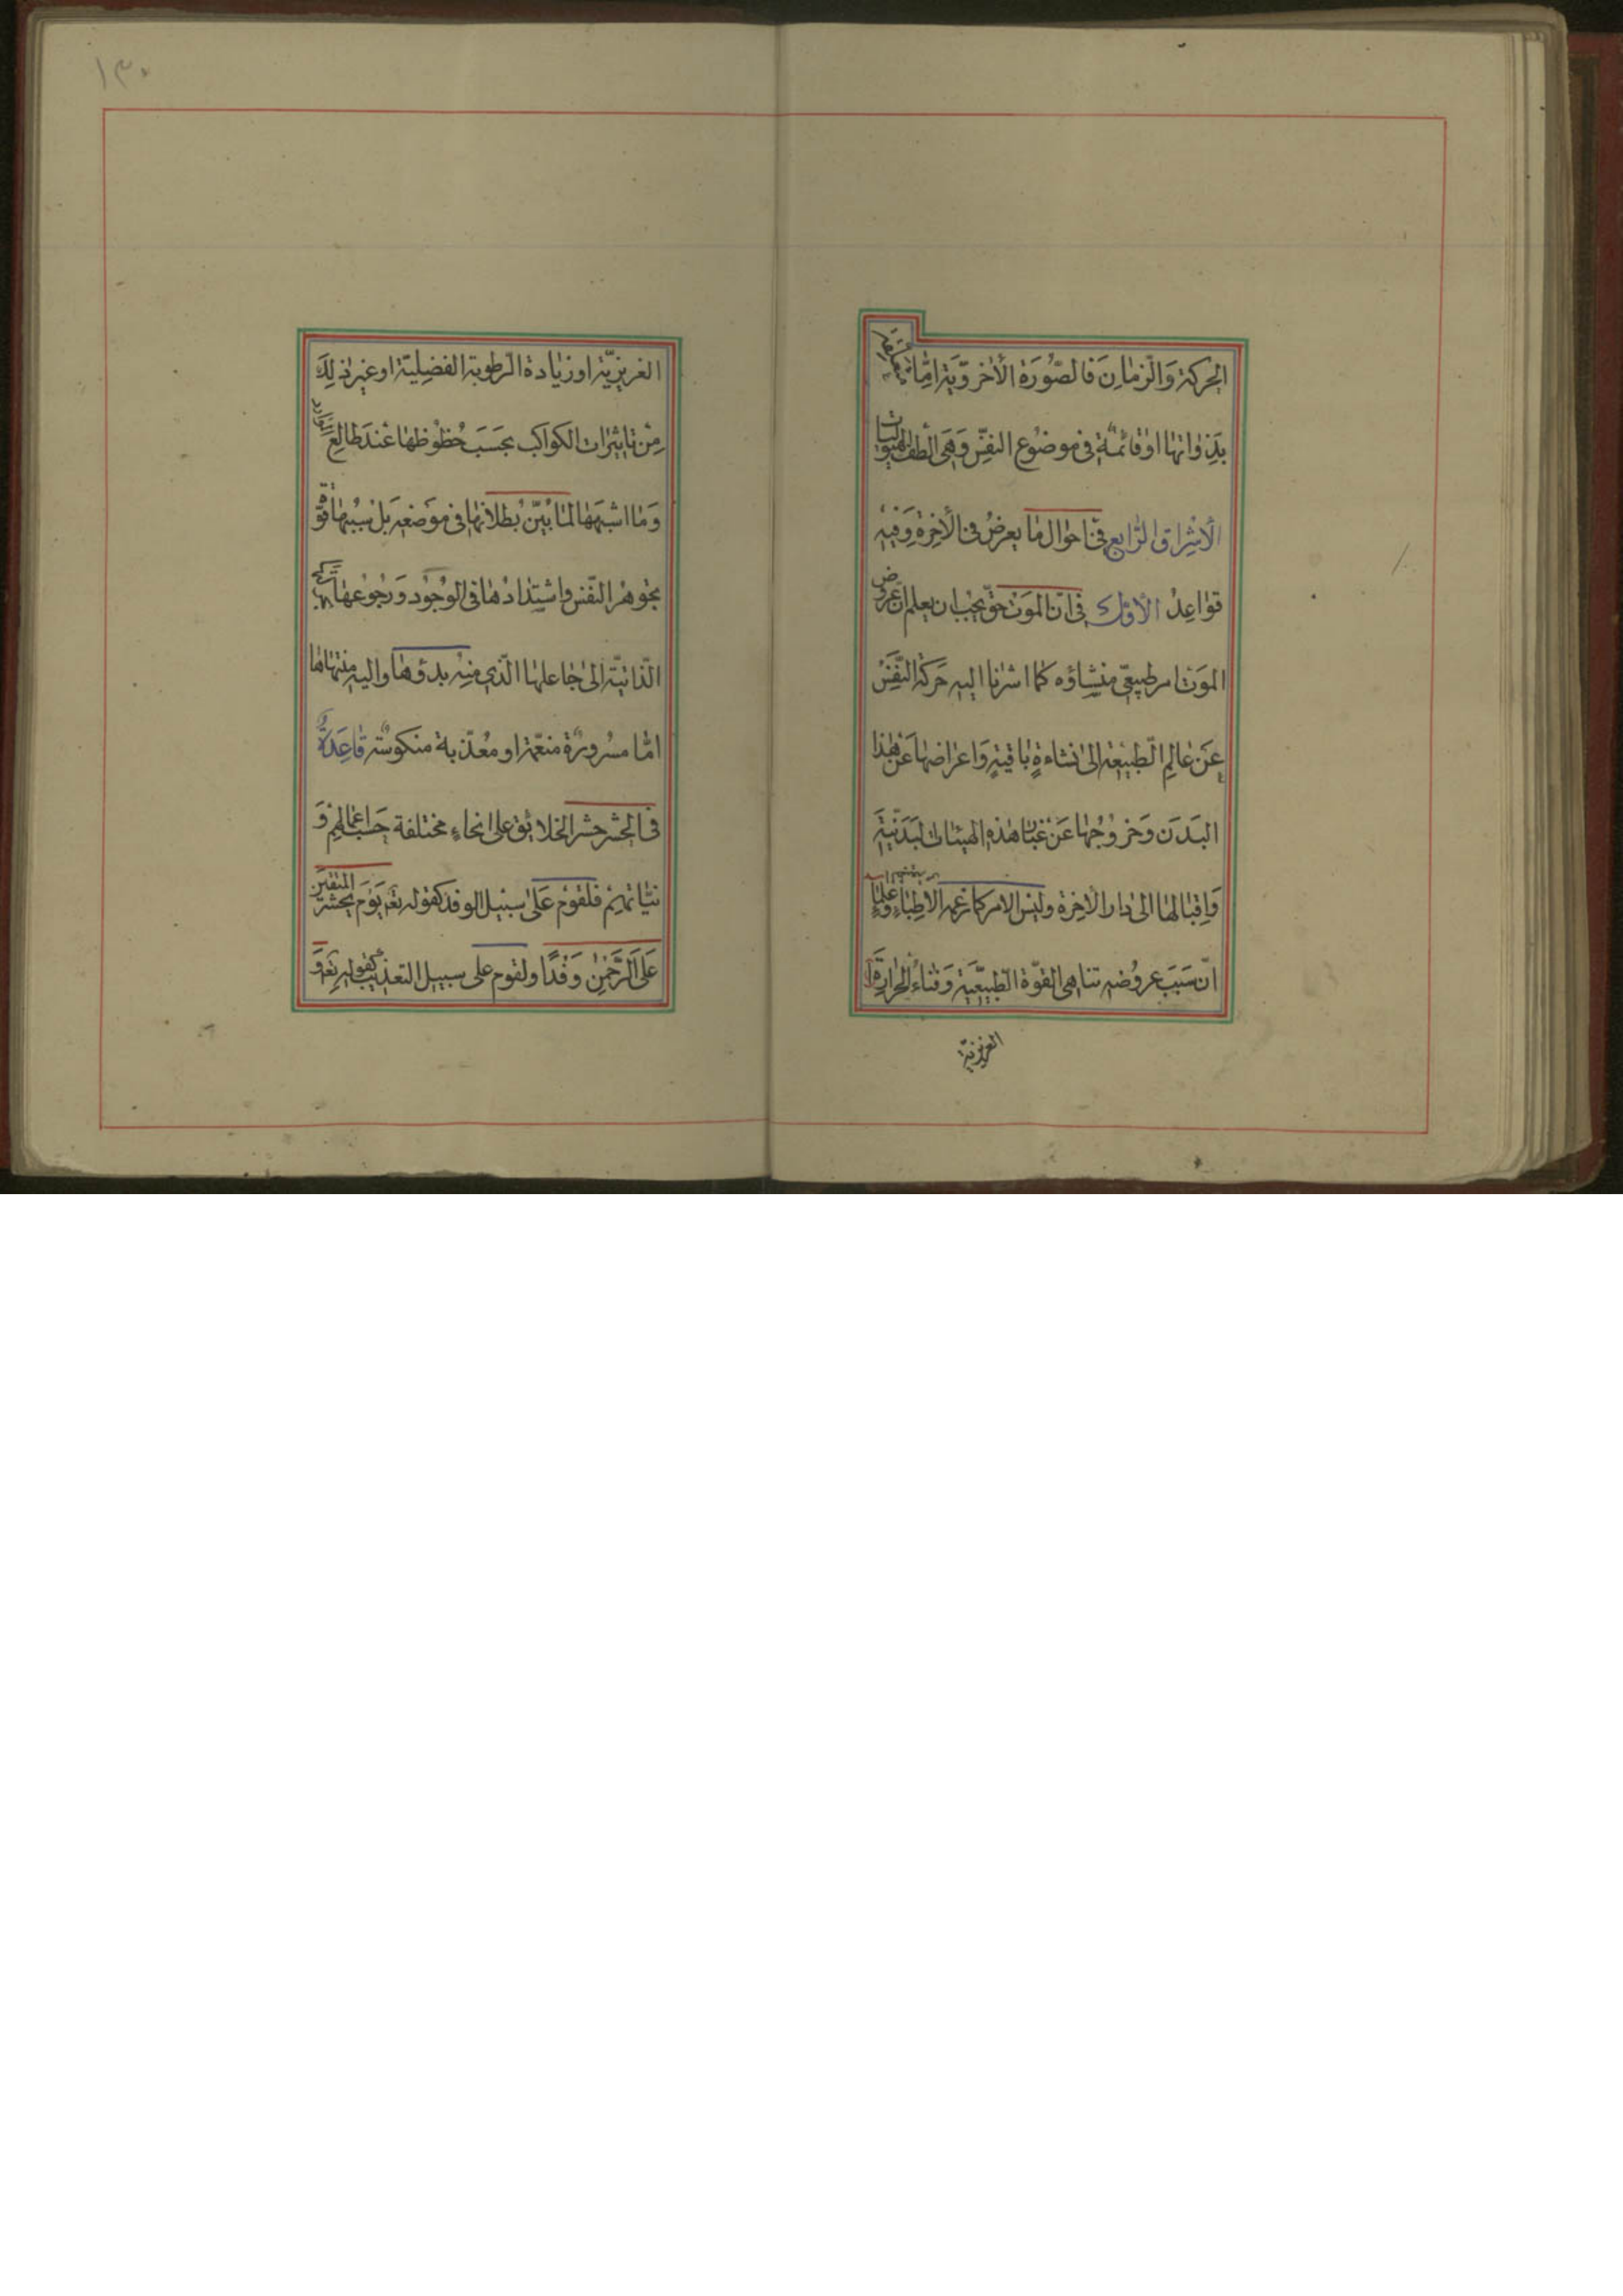 الحركة وَالزّمانِ فَالصّوُرَة الأخروّيَة امّا
بِذواتها اوقائمة فى موضُوع النفسِ وَهىَ الطف الهيوليات
الأشراق الرّابع فى احوال ما يعرضُ فى الأخِرة وَفيه
قواعِدُ الأوّل فى انّ الموَت حقّ يجب ان يعلم انّ عروض
الموَت امر طبيعىّ منشاؤه كما اشرنا اليه حَركة النّفسْ
عَن عالمِ الطّبيعْة الى نشاءةٍ باقيةٍ وَاعراضها عَن هذا
البَدَن وَخروُجُها عَن غبار هذه الهيئات البَدَنيّة
وَاِقبالها الى دار الأخِرة وليس الامر كما زعمه الاطباء وعلماء
انّ سَبَبَ عروُضه تناهى القوّة الطّبيعّية وَفناءُ الحرارة
الغريزيّة
١٣٠
الغريزيّة او زيادة الرّطوبة الفضليّة او غير ذلِكَ
مِنْ تاثيرات الكواكب بحَسَب حُظوُظها عْندَ طالع
وَما اشبهَها لما بُيّن بُطلانها فى موَضعه بَل سببُها قوّة
بجوهْر النّفس واشتِدادُها فى الوُجوُد وَرجُوُعْها
الذّاتيّة الى جاعلها الّذى منِهُ بدؤها واليه منتهاها
امّا مسرورةً منعّمة او مُعذّبة منكوسَة قاعِدَةٌ
فى الحشر حشر الخلايق على انحاءٍ مختلفة حَسَب اعمالهِم وَ
نيّاتهِم فلقوْم عَلى سبيل الوفد كقوله تعَ يَوْمَ نحشر المتقين
عَلَى الرَّحمْنِ وَفْدًا ولقوم على سبيل التعذيب كقوله تعَ وَ